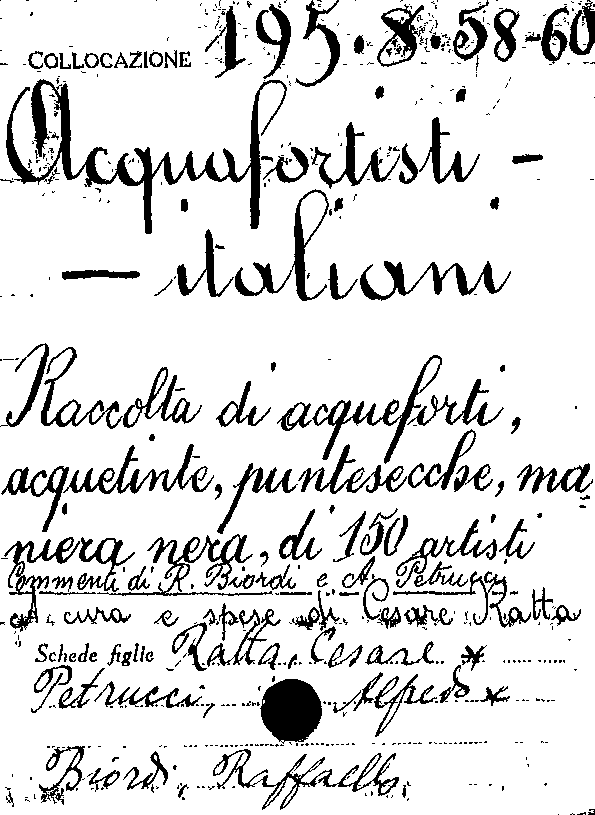 COLLOCAZIONE 195.8.58-60
Acquafortisti -
- italiani
Raccolta di acqueforti,
acquetinte, puntesecche, ma
niera nera, di 150 artisti
Commenti di R. Biordi e A. Petrucci
A cura e spese di Cesare Ratta
Schede figlie Ratta, Cesare *
Petrucci, Alfredo *
Biordi, Raffaello.